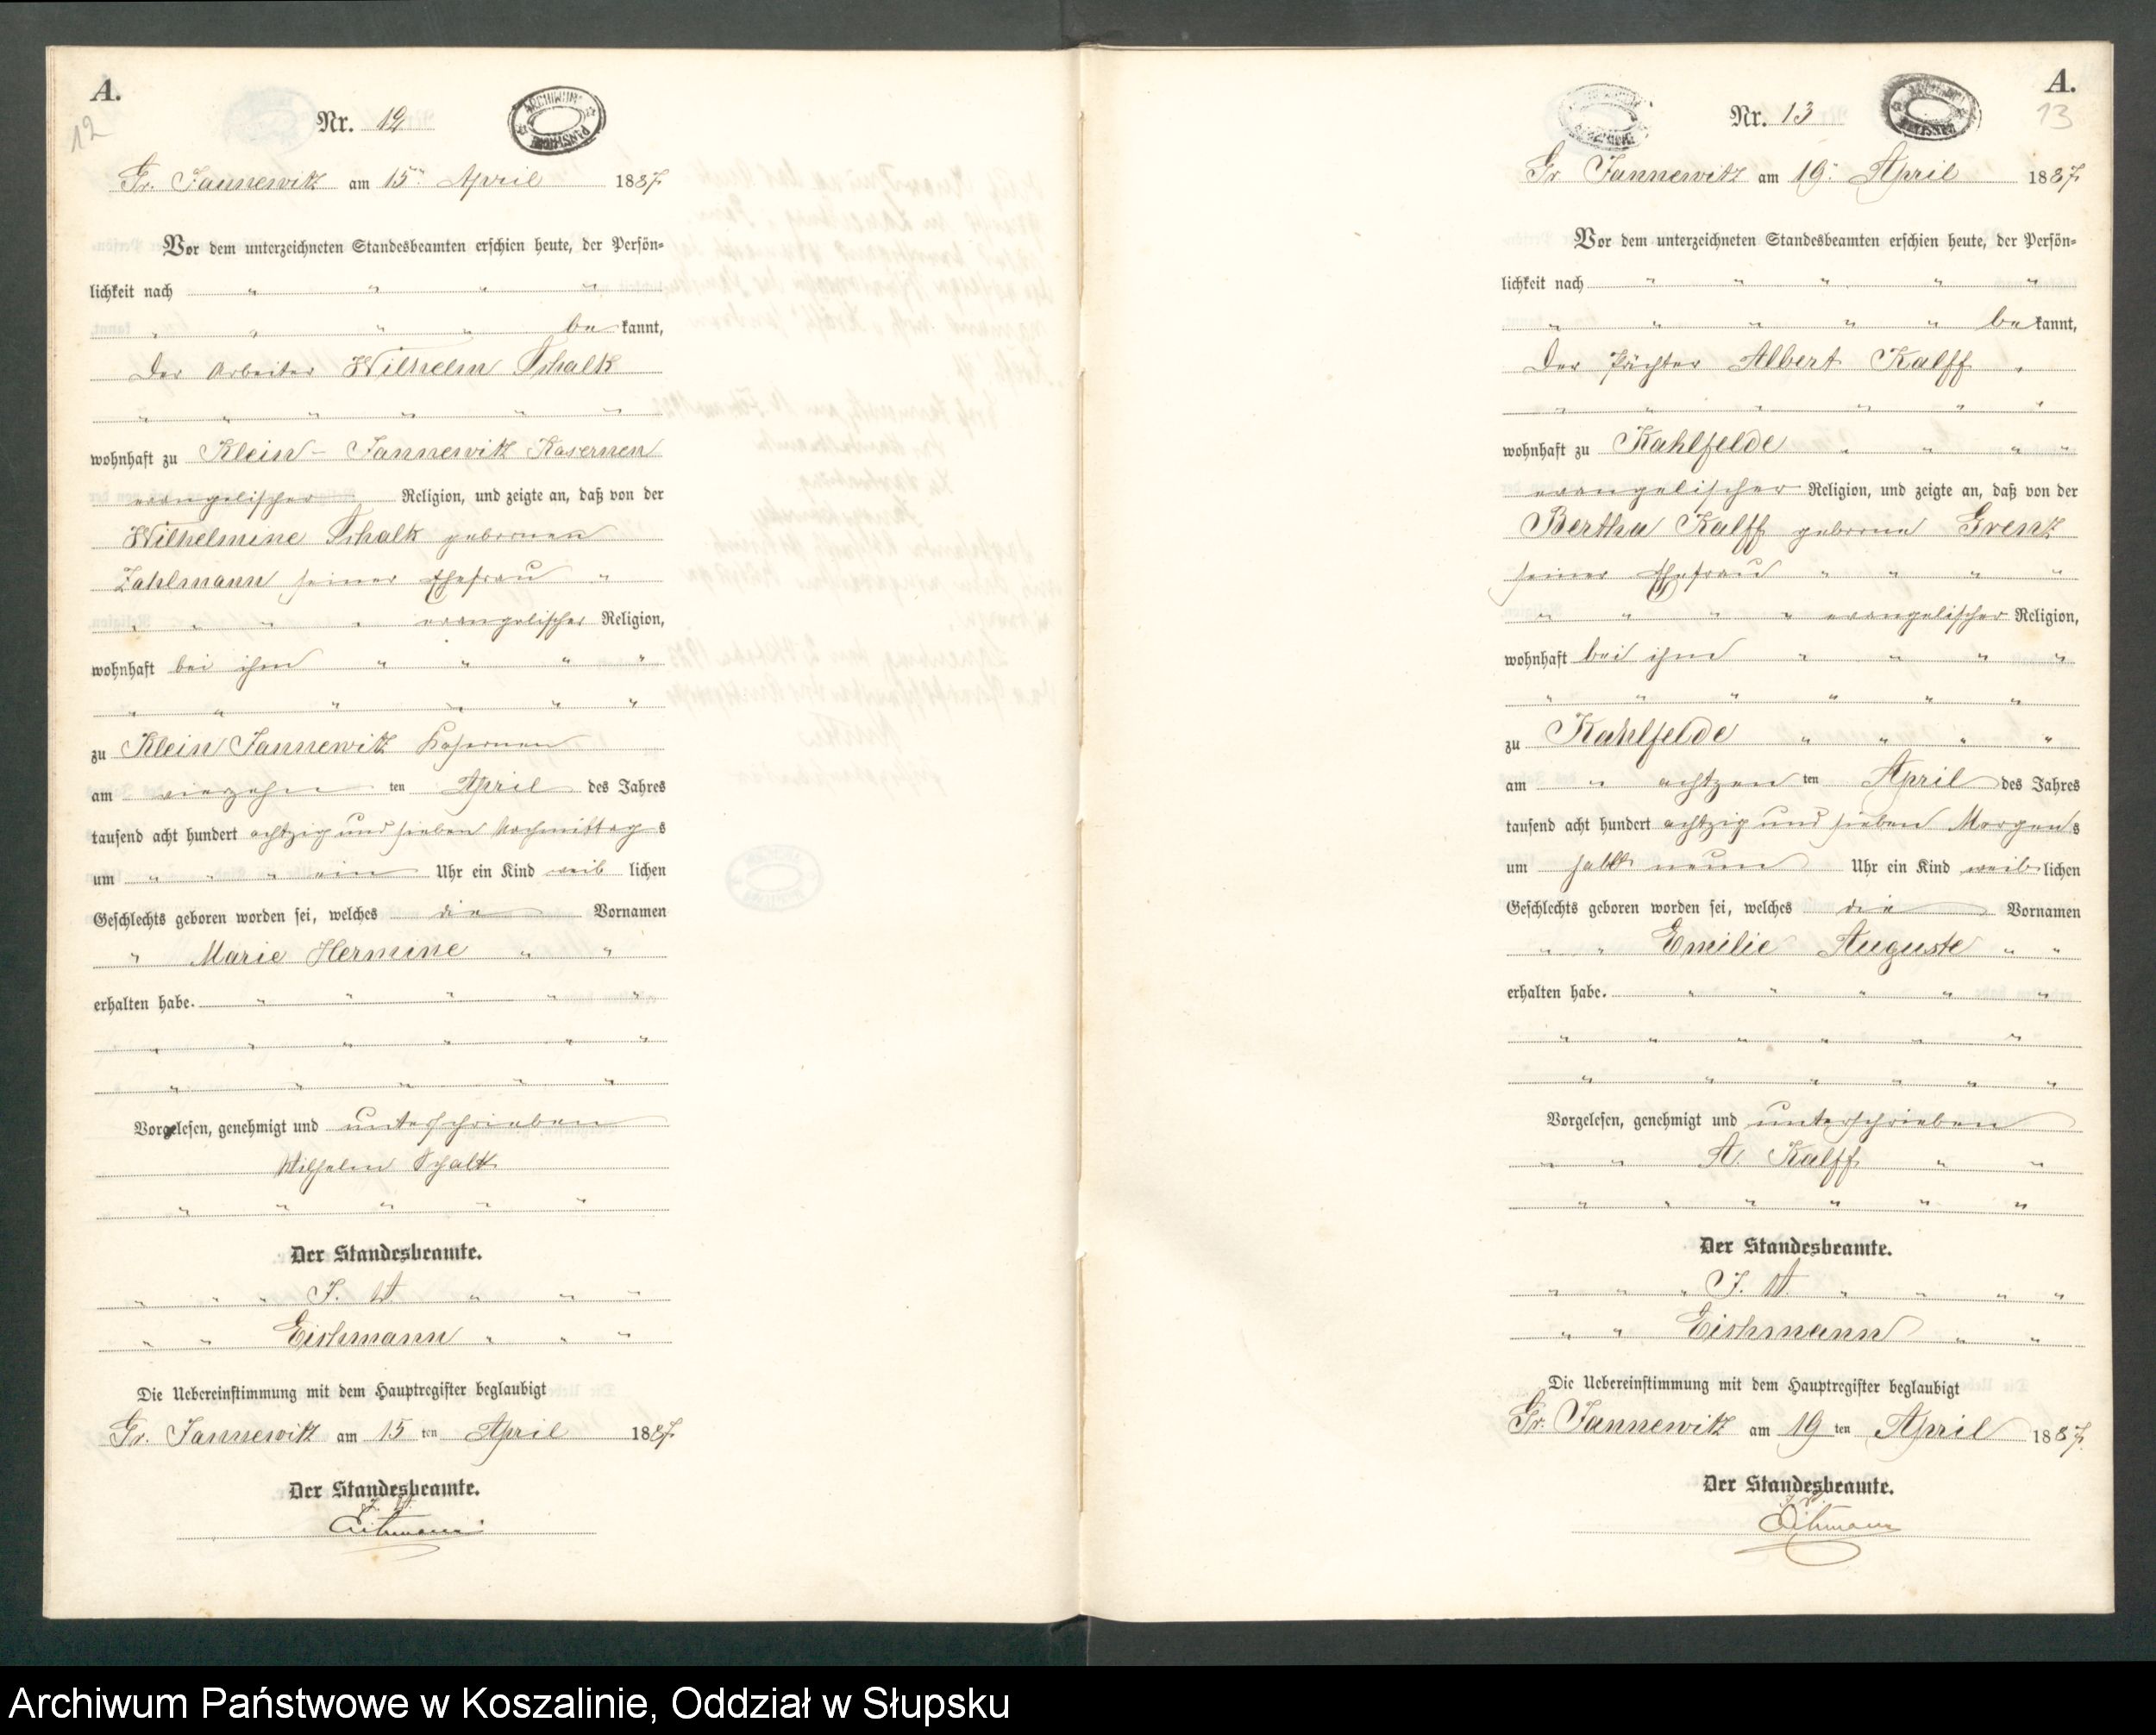 A.
12
Nr. 12
ARCHIWUM PAŃSTWOWE
Gr. Jannewitz am 15ten April 1887
Vor dem unterzeichneten Standesbeamten erschien heute, der Persön-
lichkeit nach " " " "
" " " " be kannt,
der Arbeiter Wilhelm Schalk
" " " " " "
wohnhaft zu Klein-Jannewitz Kasernen
evangelischer Religion, und zeigte an, daß von der
Wilhelmine Schalk geborenen
Zahlmann seiner Ehefrau "
" " " " evangelischer Religion,
wohnhaft bei ihm " " " "
" " " " " "
zu Klein Jannewitz Kasernen
am vierzehn ten April des Jahres
tausend acht hundert achtzig und sieben Nachmittag s
um " " " ein Uhr ein Kind weib lichen
Geschlechts geboren worden sei, welches die Vornamen
" Marie Hermine " "
erhalten habe. " " " " "
" " " " " "
" " " " "
Vorgelesen, genehmigt und unterschrieben
Wilhelm Schalk
" " " " "
Der Standesbeamte.
" " " J. V. " " "
" " Eichmann " " "
Die Uebereinstimmung mit dem Hauptregister beglaubigt
Gr. Jannewitz am 15 ten April 1887
Der Standesbeamte.
J. V.
Eichmann
A.
13
Nr. 13
Gr Jannewitz am 19. April 1887
Vor dem unterzeichneten Standesbeamten erschien heute, der Persön-
lichkeit nach " " " " "
" " " " " be kannt,
der Pächter Albert Kalff "
" " " " " "
wohnhaft zu Kahlfelde " " " "
evangelischer Religion, und zeigte an, daß von der
Bertha Kalff geborne Grenz
seiner Ehefrau " " " "
" " " " evangelischer Religion,
wohnhaft bei ihm " " " "
" " " " " "
zu Kahlfelde " " " "
am " achtzen ten April des Jahres
tausend acht hundert achtzig und sieben Morgen s
um halb neun Uhr ein Kind weib lichen
Geschlechts geboren worden sei, welches die Vornamen
" " Emilie Auguste " "
erhalten habe. " " " " "
" " " " " "
" " " " " "
Vorgelesen, genehmigt und unterschrieben
" " A. Kalff " "
" " " " " "
Der Standesbeamte.
" " " J. V. " " " "
" " Eichmann " "
Die Uebereinstimmung mit dem Hauptregister beglaubigt
Gr. Jannewitz am 19 ten April 1887.
Der Standesbeamte.
J. V.
Eichmann
Archiwum Państwowe w Koszalinie, Oddział w Słupsku